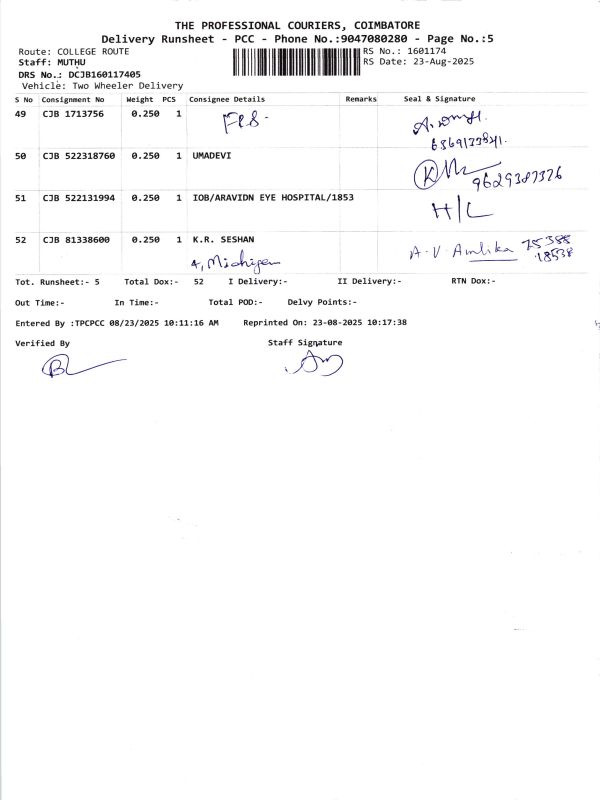 THE PROFESSIONAL COURIERS, COIMBATORE
Delivery Runsheet - PCC - Phone No.:9047080280 - Page No.:5
Route: COLLEGE ROUTE RS No.: 1601174
Staff: MUTHU RS Date: 23-Aug-2025
DRS No.: DCJB160117405
Vehicle: Two Wheeler Delivery
S No Consignment No Weight PCS Consignee Details Remarks Seal & Signature
49 CJB 1713756 0.250 1
50 CJB 522318760 0.250 1 UMADEVI
9629387376
51 CJB 522131994 0.250 1 IOB/ARAVIDN EYE HOSPITAL/1853
H/L
52 CJB 81338600 0.250 1 K.R. SESHAN A.V. 75388
4, 18538
Tot. Runsheet:- 5 Total Dox:- 52 I Delivery:- II Delivery:- RTN Dox:-
Out Time:- In Time:- Total POD:- Delvy Points:-
Entered By :TPCPCC 08/23/2025 10:11:16 AM Reprinted On: 23-08-2025 10:17:38
Verified By Staff Signature